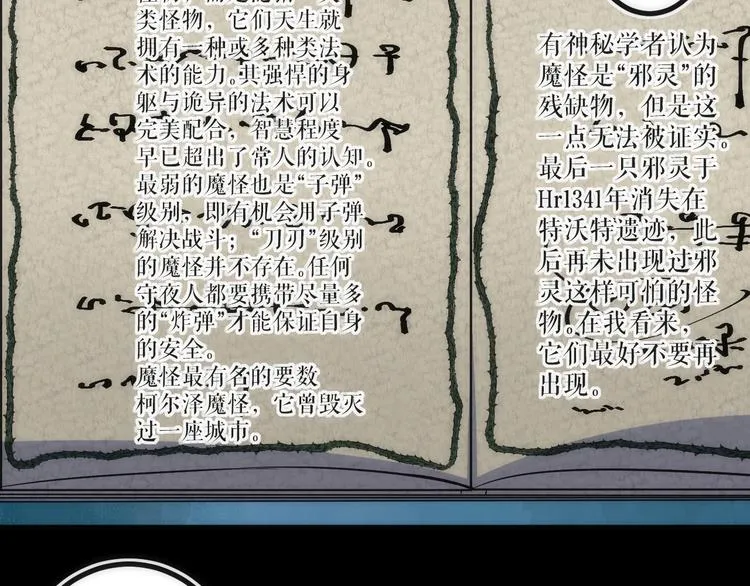 类怪物，它们天生就
拥有一种或多种类法
术的能力。其强悍的身
躯与诡异的法术可以
完美配合，智慧程度
早已超出了常人的认知。
最弱的魔怪也是“子弹”
级别，即有机会用子弹
解决战斗；“刀刃”级别
的魔怪并不存在。任何
守夜人都要携带尽量多
的“炸弹”才能保证自身
的安全。
魔怪最有名的要数
柯尔泽魔怪，它曾毁灭
过一座城市。
有神秘学者认为
魔怪是“邪灵”的
残缺物，但是这
一点无法被证实。
最后一只邪灵于
Hr1341年消失在
特沃特遗迹，此
后再未出现过邪
灵这样可怕的怪
物。在我看来，
它们最好不要再
出现。